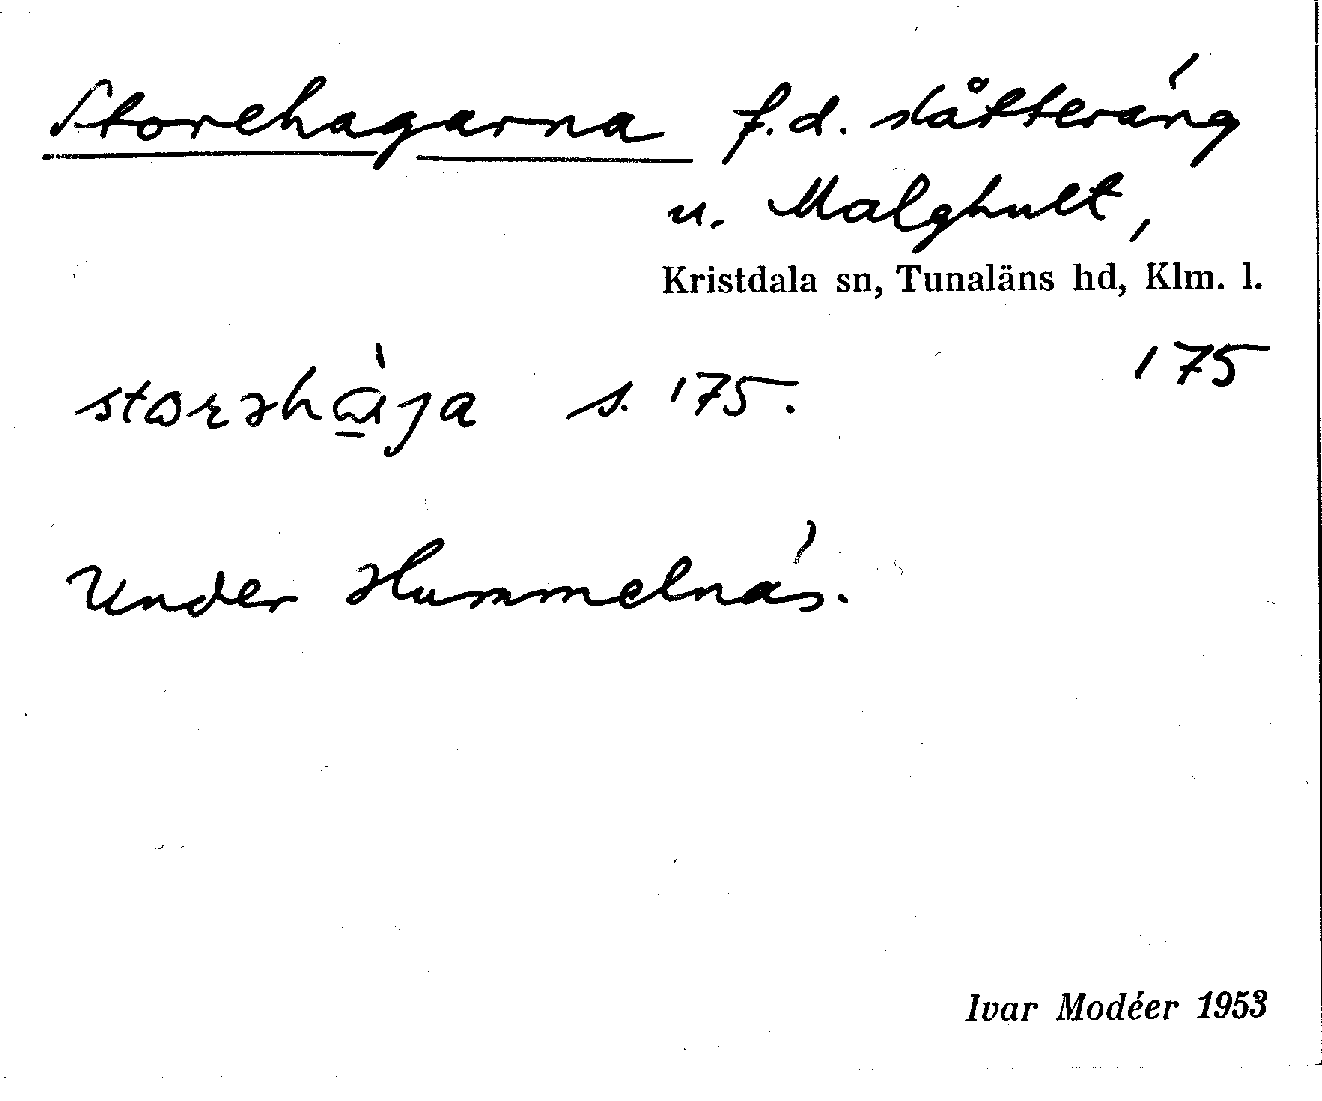 Storehagarna f.d. slåtteräng
u. Malghult,
Kristdala sn, Tunaläns hd, Klm. l.
175
s. 175.
Under Hummelnäs.
Ivar Modéer 1953